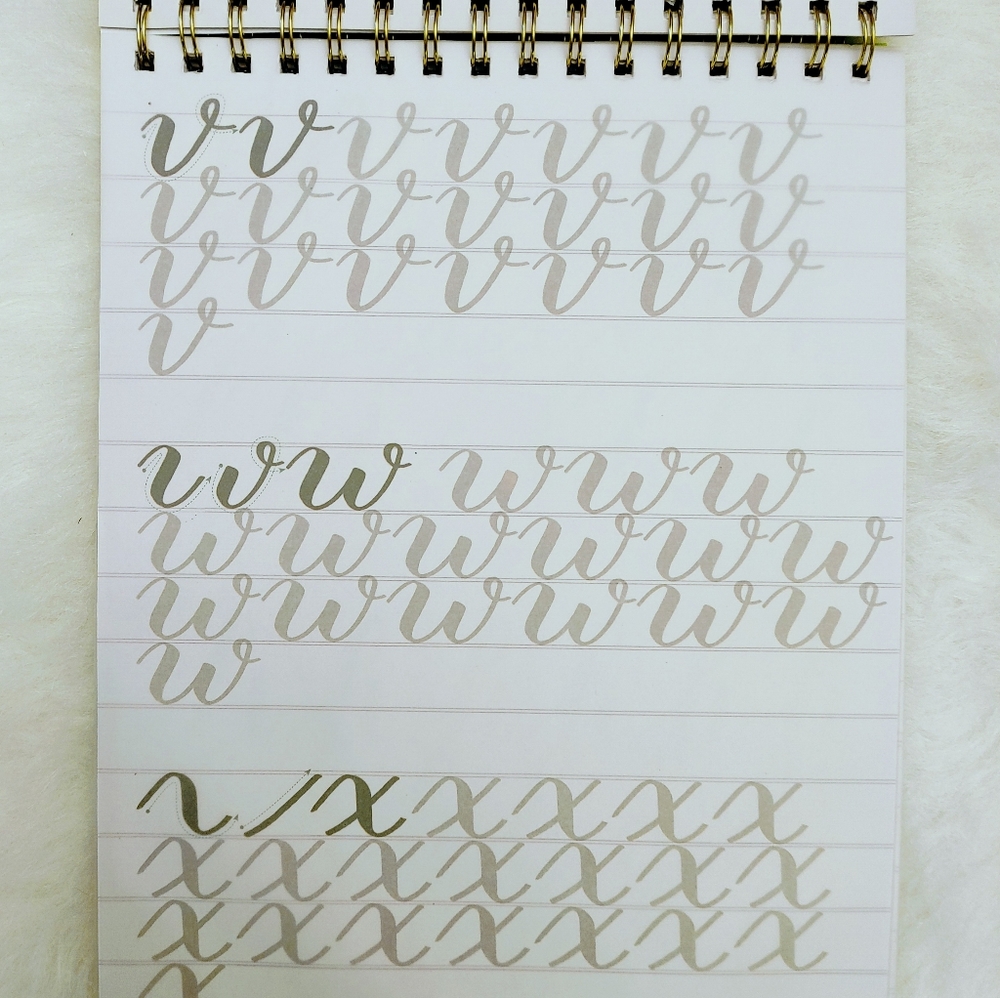 v v v v v v v
v v v v v v v
v v v v v v v
v
w w w w w
w w w w w w
w w w w w w
w
x x x x x x
x x x x x x x
x x x x x x x
x